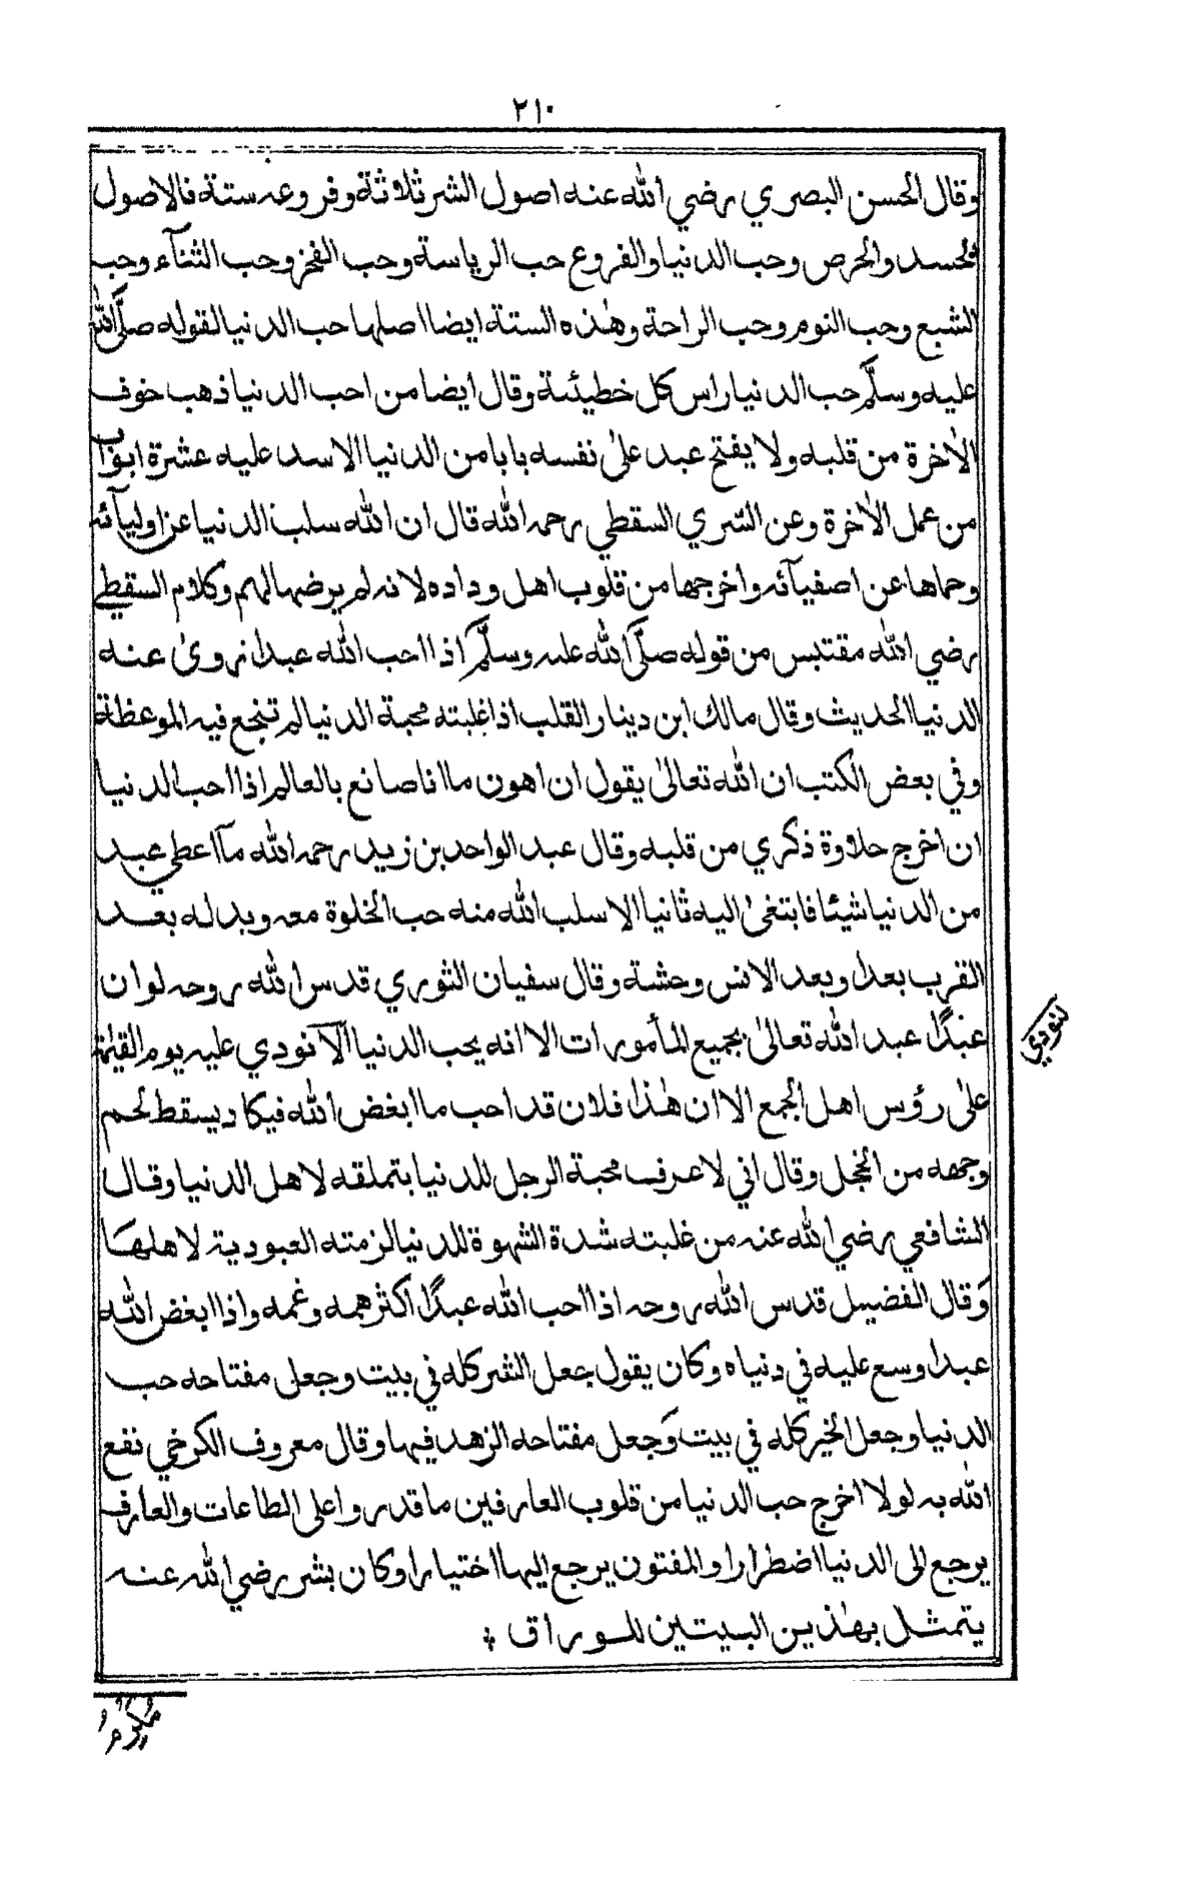 ٢١٠
وقال الحسن البصري رضي الله عنه اصول الشر ثلاثة وفروعه ستة فالاصول
الحسد والحرص وحب الدنيا والفروع حب الرياسة وحب الفخر وحب الثنآء وحب
الشبع وحب النوم وحب الراحة وهٰذه الستة ايضا اصلها حب الدنيا لقوله صلَّى الله
عليه وسلَّم حب الدنيا راس كل خطيئة وقال ايضا من احب الدنيا ذهب خوف
الاٰخرة من قلبه ولا يفتح عبد علىٰ نفسه بابا من الدنيا الا سد عليه عشرة ابواب
من عمل الاٰخرة وعن السّري السقطي رحمه الله قال ان الله سلب الدنيا عن اوليآئه
وحماها عن اصفيآئه واخرجها من قلوب اهل وداده لانه لم يرضها لهم وكلام السقطي
رضي الله مقتبس من قوله صلَّى الله عليه وسلَّم اذا احب الله عبدا زوىٰ عنه
الدنيا الحديث وقال مالك ابن دينار القلب اذا غلبته محبة الدنيا لم تنجع فيه الموعظة
وفي بعض الكتب ان الله تعالىٰ يقول ان اهون ما انا صانع بالعالم اذا احب الدنيا
ان اخرج حلاوة ذكري من قلبه وقال عبد الواحد بن زيد رحمه الله مآ اعطي عبد
من الدنيا شيئا فابتغىٰ اليه ثانيا الا سلب الله منه حب الخلوة معه وبدله بعد
القرب بعدا وبعد الانس وحشة وقال سفيان الثوري قدس الله روحه لو ان
عبدًا عبد الله تعالىٰ بجميع المأمورات الا انه يحب الدنيا الآ نودي عليه يوم القيٰمة
لنودي
علىٰ رؤس اهل الجمع الا ان هٰذا فلان قد احب ما ابغض الله فيكاد يسقط لحم
وجهه من الخجل وقال اني لاعرف محبة الرجل للدنيا بتملقه لاهل الدنيا وقال
الشافعي رضي الله عنه من غلبته شدة الشهوة للدنيا لزمته العبودية لاهلها
وَقال الفضيل قدس الله روحه اذا احب الله عبدًا اكثر همه وغمه واذا ابغض الله
عبدا وسع عليه في دنياه وكان يقول جعل الشر كله في بيت وجعل مفتاحه حب
الدنيا وجعل الخير كله في بيت وَجعل مفتاحه الزهد فيها وقال معروف الكرخي نفع
الله به لولا اخرج حب الدنيا من قلوب العارفين ما قدروا على الطاعات والعارف
يرجع الى الدنيا اضطرارا والمفتون يرجع اليها اختيارا وكان بشر رضي الله عنه
يتمثل بهٰذين البيتين للوراق